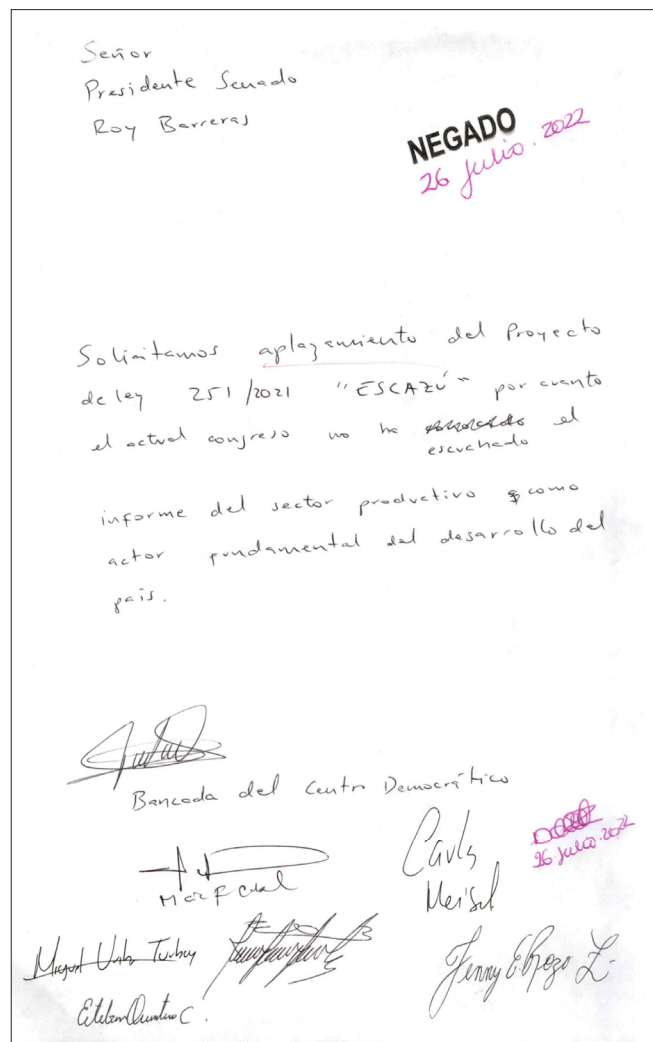 Señor
Presidente Senado
Roy Barreras
NEGADO
26 julio. 2022
Solicitamos aplazamiento del Proyecto
de ley 251/2021 "ESCAZÚ" por cuanto
el actual congreso no ha el
escuchado
informe del sector productivo como
actor fundamental del desarrollo del
país.
Bancada del Centro Democrático
Carlos
Meisel
26 julio. 2022
Miguel Uribe Turbay
Esteban Quintero C.